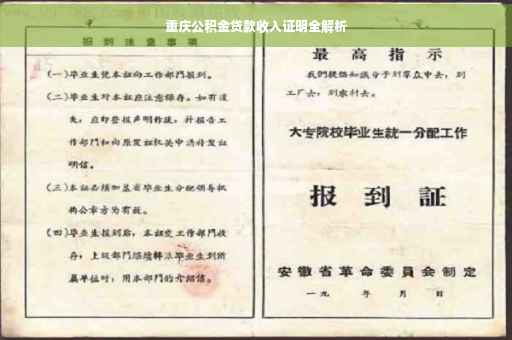 重庆公积金贷款收入证明全解析
报到注意事项
(一)毕业生凭本证向工作部门报到。
(二)毕业生对本证应注意保存。如有遗
失,应即登报声明作废,并报告工
作部门和向原发证机关申请补发证
明信。
(三)本证必须加盖省毕业生分配领导机
构公章方为有效。
(四)毕业生报到后,本证交工作部门收
存;上级部门
属单位时,用本部门的介绍信。
最高指示
我们提倡知识分子到群众中去,到
工厂去,到农村去。
大专院校毕业生统一分配工作
报到証
安徽省革命委員会制定
一九 年 月 日